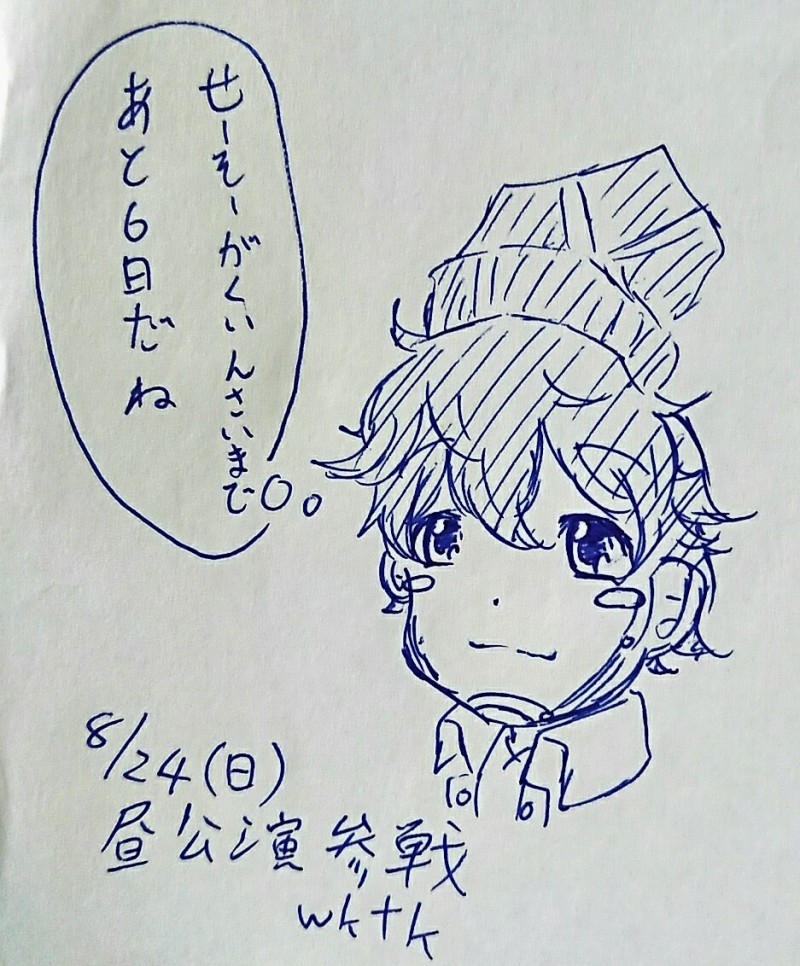 せーそーがくいんさいまで
あと6日だね
8/24(日)
昼公演参戦
wktk